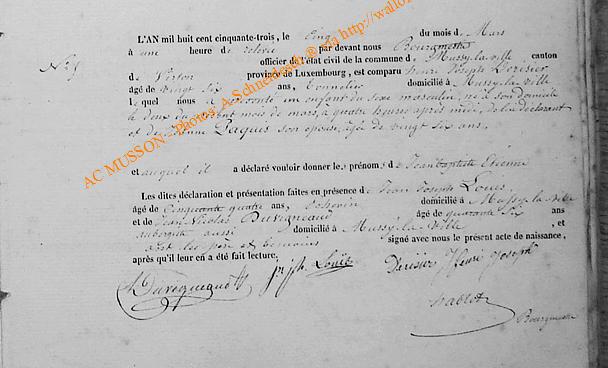 L'AN mil huit cent cinquante-trois, le Cinq du mois d Mars
à une heure de relevée par devant nous Bourgmestre
officier de l'état civil de la commune d Mussy-la-Ville canton
d Virton province de Luxembourg, est comparu henri Joseph
âgé de vingt six ans, tonnelier domicilié à Mussy-la-Ville
lequel nous a présenté un enfant du sexe masculin, né à son domicile
le deux du mois de mars, à quatre heures après midi, de lui déclarant
et de Jeanne Paquis son épouse, âgée de vingt six ans.
et auquel il a déclaré vouloir donner le prénom d Jean Baptiste Etienne
Les dites déclaration et présentation faites en présence d Jean Joseph Louis
âgé de Cinquante quatre ans, domicilié à Mussy-la-Ville
et de Jean Nicolas Duvigneaud âgé de quarante six ans
aubergiste aussi domicilié à Mussy-la-Ville, et
ont les père et témoins signé avec nous le présent acte de naissance,
après qu'il leur en a été fait lecture.
Duvigneaud Louis Henri Joseph
Bourgmestre
AC MUSSON - Photos: A. Schneider
http://wallo